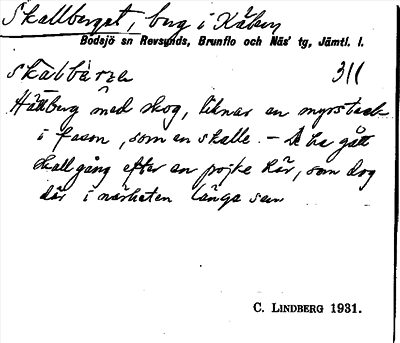 Skallberget, berg i Kälen
Bodsjö sn Revsunds, Brunflo och Näs' tg, Jämtl. l.
skàlbàrᶎe 311
Hättberg med skog, liknar en myrstack
i fason, som en skalle. – De ha gått
skallgång efter en pojke här, som dog
där i närheten länge sen
C. LINDBERG 1931.